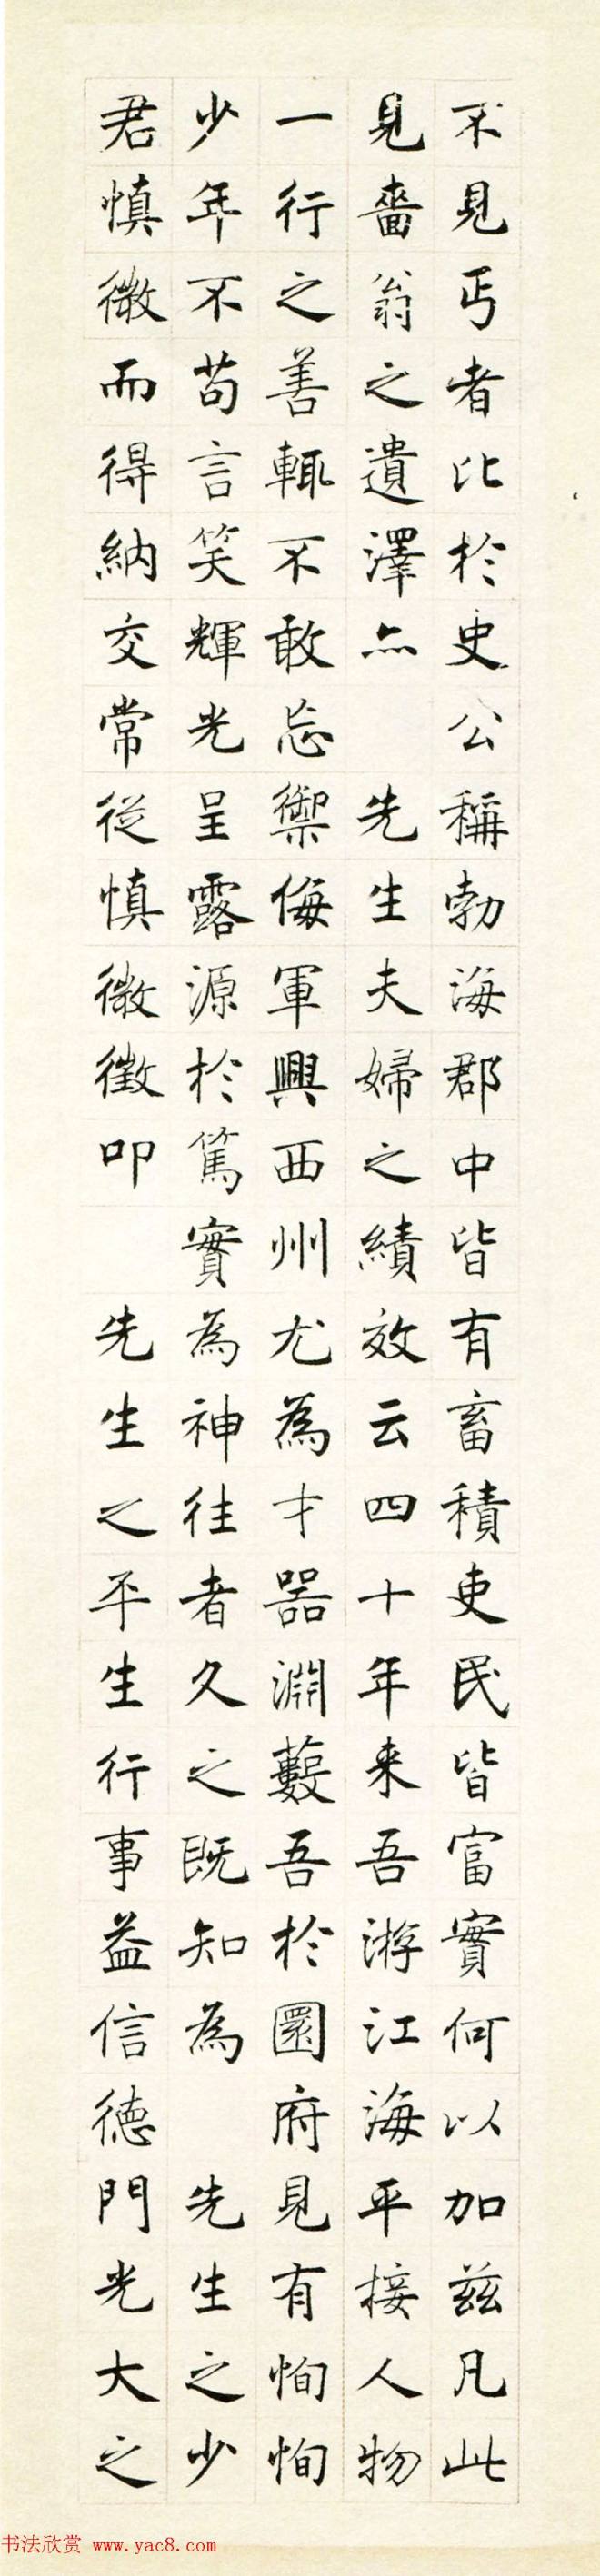 不見丐者比於史公稱勃海郡中皆有畜積吏民皆富實何以加茲凡此
見嗇翁之遺澤亦 先生夫婦之績效云四十年来吾游江海平接人物
一行之善輒不敢忘禦侮軍興西州尤為才器淵藪吾於園府見有恂恂
少年不苟言笑輝光呈露源於篤實為神往者久之既知為 先生之少
君慎微而得納交常從慎微徵叩 先生之平生行事益信德門光大之
书法欣赏 www.yac8.com